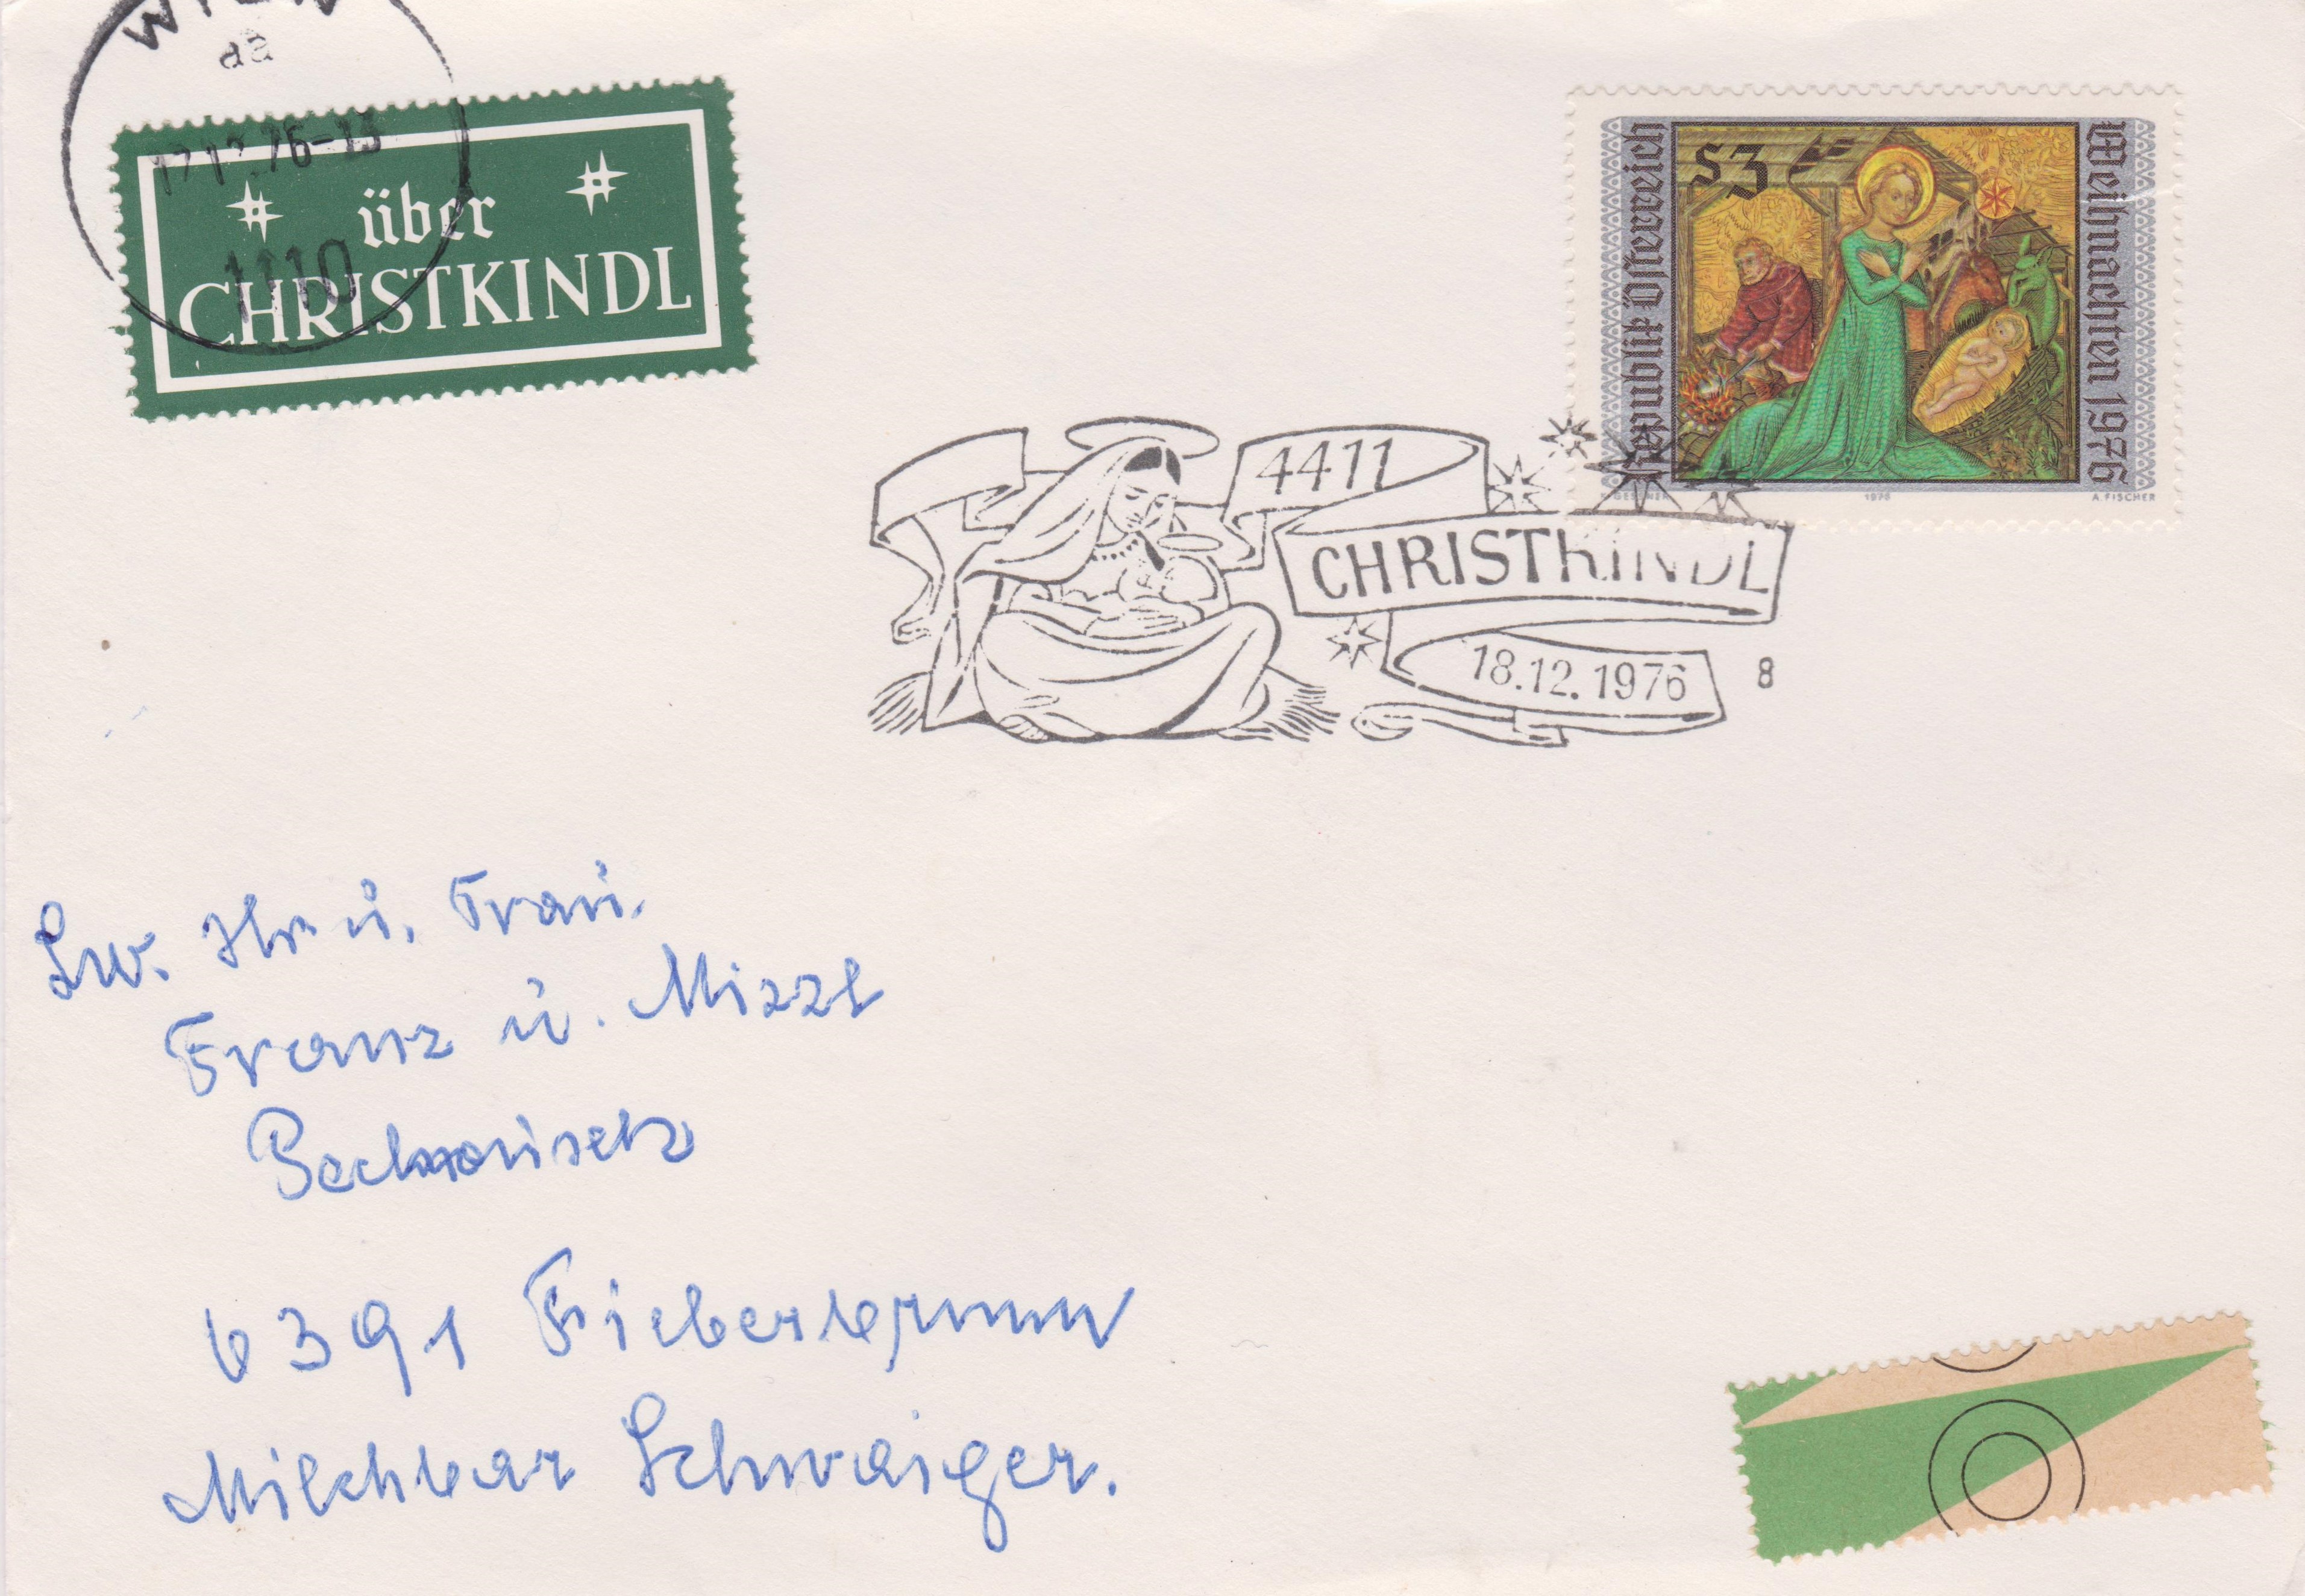 WIEN
aa
17.12.76-13
1110
über
CHRISTKINDL
S3
Republik Österreich
Weihnachten 1976
1976
A. FISCHER
4411
CHRISTKINDL
18.12.1976
8
Hr u. Frau.
Franz u. Mizzi
6391 Fieberbrunn
Milchbar Schwaiger.